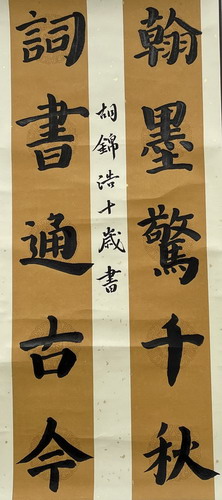 翰墨驚千秋
詞書通古今
胡錦浩十歲書